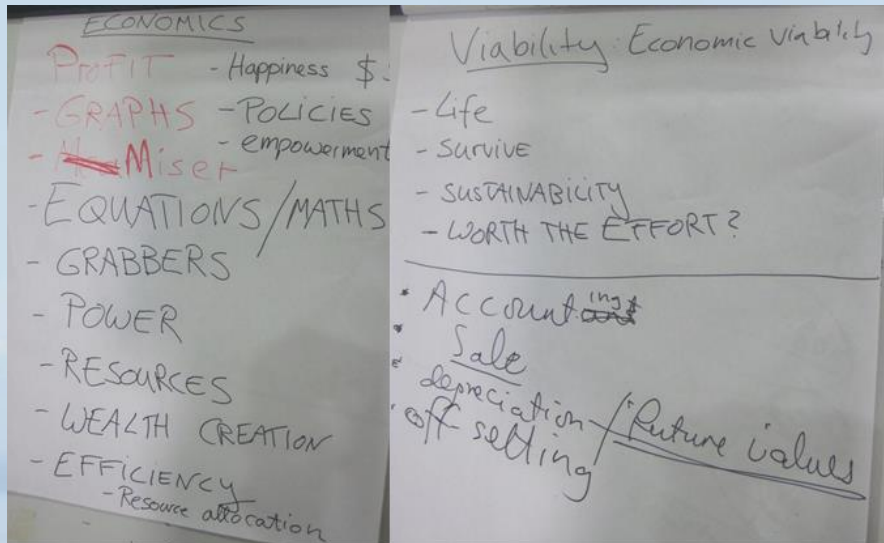 ECONOMICS
PROFIT - Happiness $
- GRAPHS - POLICIES
- Miser - empowerment
- EQUATIONS/MATHS
- GRABBERS
- POWER
- RESOURCES
- WEALTH CREATION
- EFFICIENCY
- Resource allocation
Viability: Economic Viability
- Life
- Survive
- SUSTAINABILITY
- WORTH THE EFFORT?
• Accounting
• Sale
• depreciation / Future values
• off setting